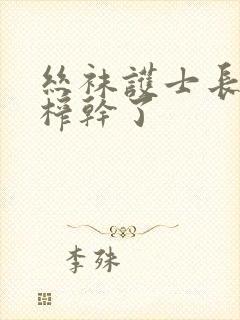 絲袜護士長
榨幹了
李殊